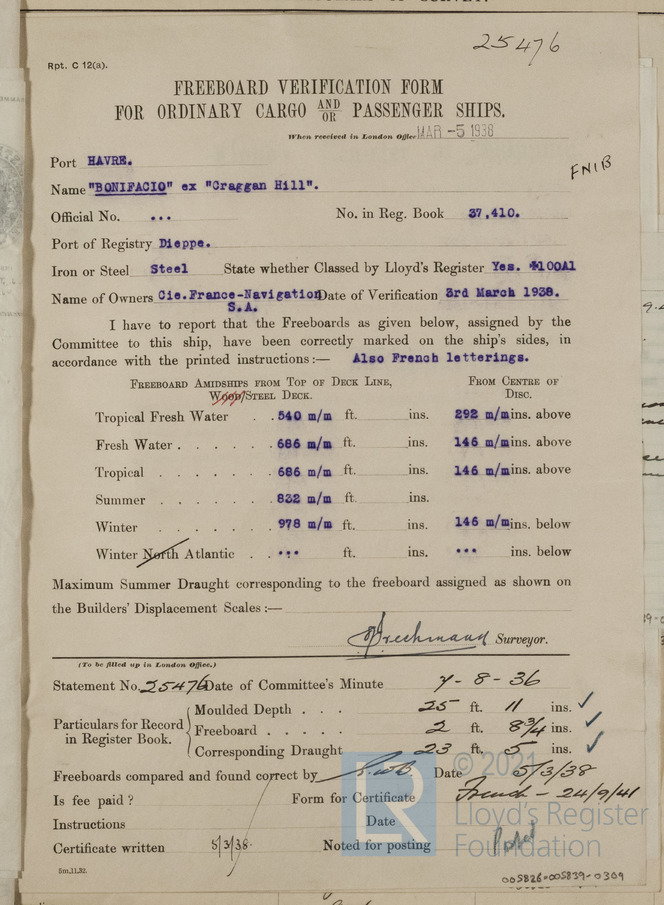 25476
Rpt. C 12(a).
FREEBOARD VERIFICATION FORM
FOR ORDINARY CARGO AND/OR PASSENGER SHIPS.
When received in London Office MAR -5 1938
Port HAVRE.
FNIB
Name "BONIFACIO" ex "Craggan Hill".
Official No. ... No. in Reg. Book 37,410.
Port of Registry Dieppe.
Iron or Steel Steel State whether Classed by Lloyd's Register Yes. ✠100A1
Name of Owners Cie.France-Navigation Date of Verification 3rd March 1938.
S.A.
I have to report that the Freeboards as given below, assigned by the
Committee to this ship, have been correctly marked on the ship's sides, in
accordance with the printed instructions:— Also French letterings.
FREEBOARD AMIDSHIPS FROM TOP OF DECK LINE, FROM CENTRE OF
WOOD/STEEL DECK. DISC.
Tropical Fresh Water . . 540 m/m ft. ins. 292 m/m ins. above
Fresh Water . . . . . . 686 m/m ft. ins. 146 m/m ins. above
Tropical . . . . . . 686 m/m ft. ins. 146 m/m ins. above
Summer . . . . . . 832 m/m ft. ins.
Winter . . . . . . 978 m/m ft. ins. 146 m/m ins. below
Winter North Atlantic . . ... ft. ins. ... ins. below
Maximum Summer Draught corresponding to the freeboard assigned as shown on
the Builders' Displacement Scales:—
Surveyor.
(To be filled up in London Office.)
Statement No. 25476 Date of Committee's Minute 7-8-36
Particulars for Record in Register Book.
Moulded Depth . . . 25 ft. 11 ins. ✓
Freeboard . . . . . 2 ft. 8 3/4 ins. ✓
Corresponding Draught 23 ft. 5 ins. ✓
Freeboards compared and found correct by Date 5/3/38
Is fee paid? Form for Certificate French - 24/9/41
Instructions Date
Certificate written 5/3/38 Noted for posting Posted
5m,11,32.
© 2021
LR
Lloyd's Register
Foundation
005826-005839-0309